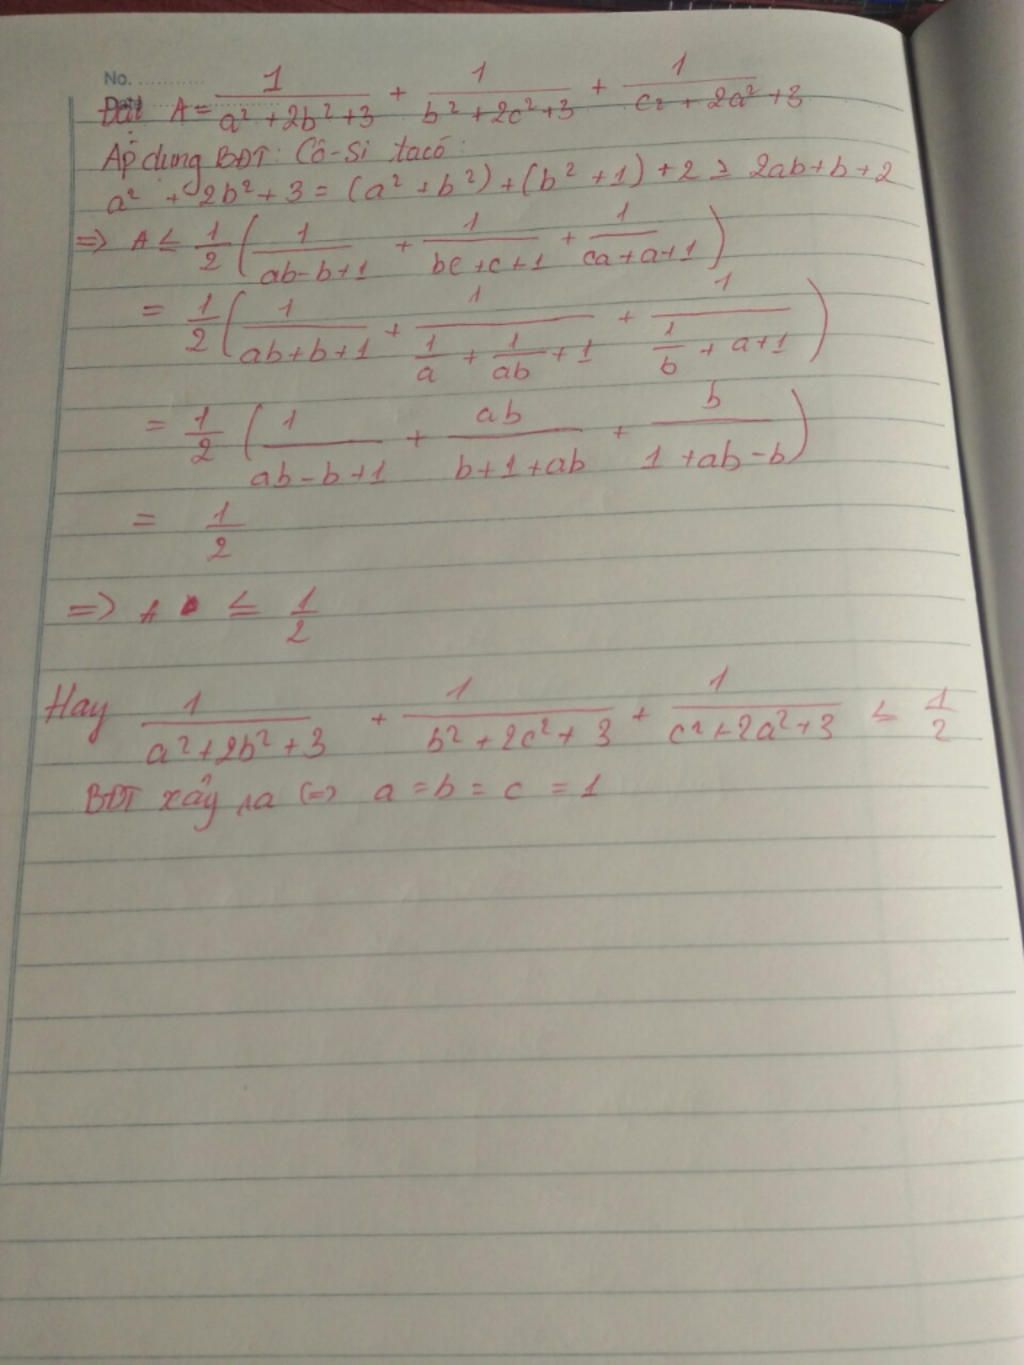 No. ............
Đặt A = 1/(a² + 2b² + 3) + 1/(b² + 2c² + 3) + 1/(c² + 2a² + 3)
Áp dụng BĐT: Cô-Si ta có:
a² + 2b² + 3 = (a² + b²) + (b² + 1) + 2 ≥ 2ab + b + 2
=> A ≤ 1/2 (1/(ab - b + 1) + 1/(bc + c + 1) + 1/(ca + a + 1))
= 1/2 (1/(ab + b + 1) + 1/(1/a + 1/ab + 1) + 1/(1/b + a + 1))
= 1/2 (1/(ab - b + 1) + ab/(b + 1 + ab) + b/(1 + ab - b))
= 1/2
=> A ≤ 1/2
Hay 1/(a² + 2b² + 3) + 1/(b² + 2c² + 3) + 1/(c² + 2a² + 3) ≤ 1/2
BĐT xảy ra (=> a = b = c = 1